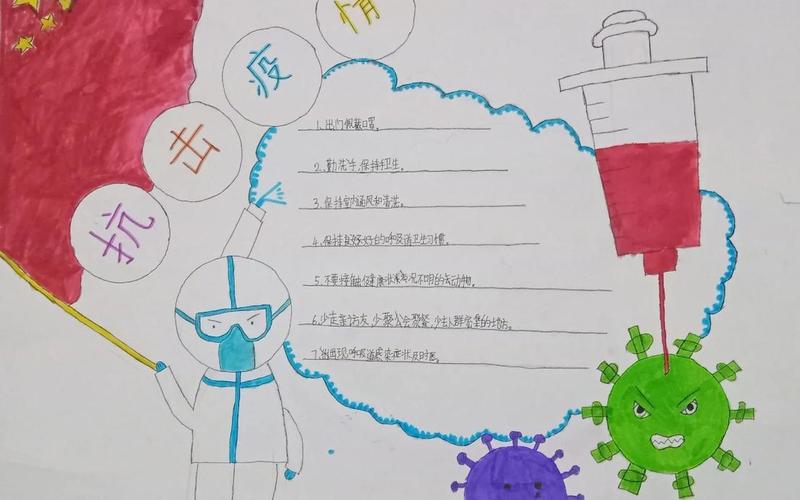 抗击疫情
1、出门佩戴口罩。
2、勤洗手,保持手卫生。
3、保持室内通风和清洁。
4、保持良好的呼吸道卫生习惯。
5、不要接触健康状况不明的
6、少走亲访友,少聚会聚餐,少去人群密集的地方。
7、出现呼吸道感染症状及时